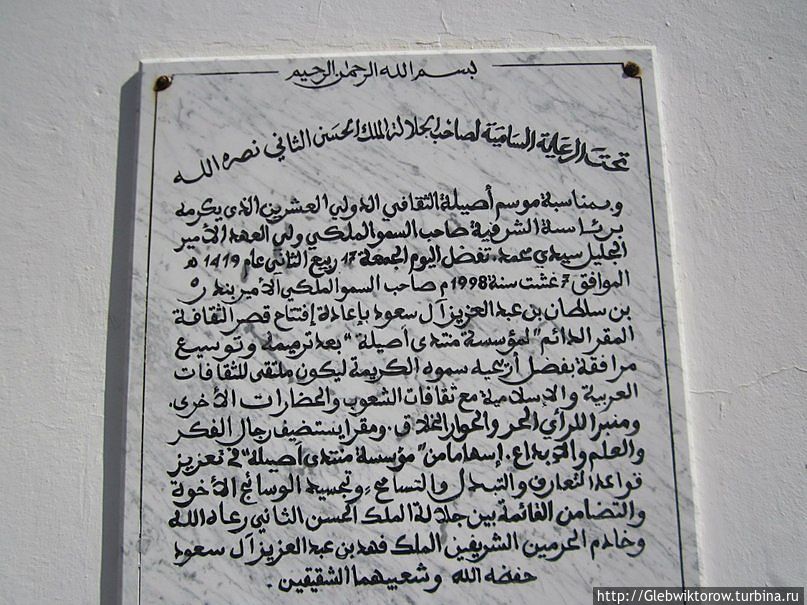 بسم الله الرحمن الرحيم
تحت الرعاية السامية لصاحب الجلالة الملك الحسن الثاني نصره الله
وبمناسبة موسم أصيلة الثقافي الدولي العشرين الذي يكرمه
برئاسته الشرفية صاحب السمو الملكي ولي العهد الأمير
الجليل سيدي محمد، تفضل اليوم الجمعة 17 ربيع الثاني عام 1419 هـ
الموافق 7 غشت سنة 1998 م صاحب السمو الملكي الأمير بندر
بن سلطان بن عبد العزيز آل سعود بإعادة إفتتاح قصر الثقافة
المقر الدائم "لمؤسسة منتدى أصيلة" بعد ترميمه وتوسيع
مرافقة بفضل أريحية سموه الكريمة ليكون ملتقى للثقافات
العربية والإسلامية مع ثقافات الشعوب والحضارات الأخرى،
ومنبرا للرأي الحر والحوار الخلاق، ومقرا يستضيف رجال الفكر
والعلم والإبداع. إسهاما من "مؤسسة منتدى أصيلة" في تعزيز
قواعد التعارف والتبادل والتسامح، وتجسيد الوسائج الأخوة
والتضامن القائمة بين جلالة الملك الحسن الثاني رعاه الله
وخادم الحرمين الشريفين الملك فهد بن عبد العزيز آل سعود
حفظه الله وشعبيهما الشقيقين.
http://Glebwiktorow.turbina.ru